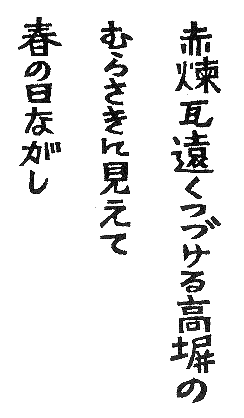 赤煉瓦遠くつづける高塀の
むらさきに見えて
春の日ながし